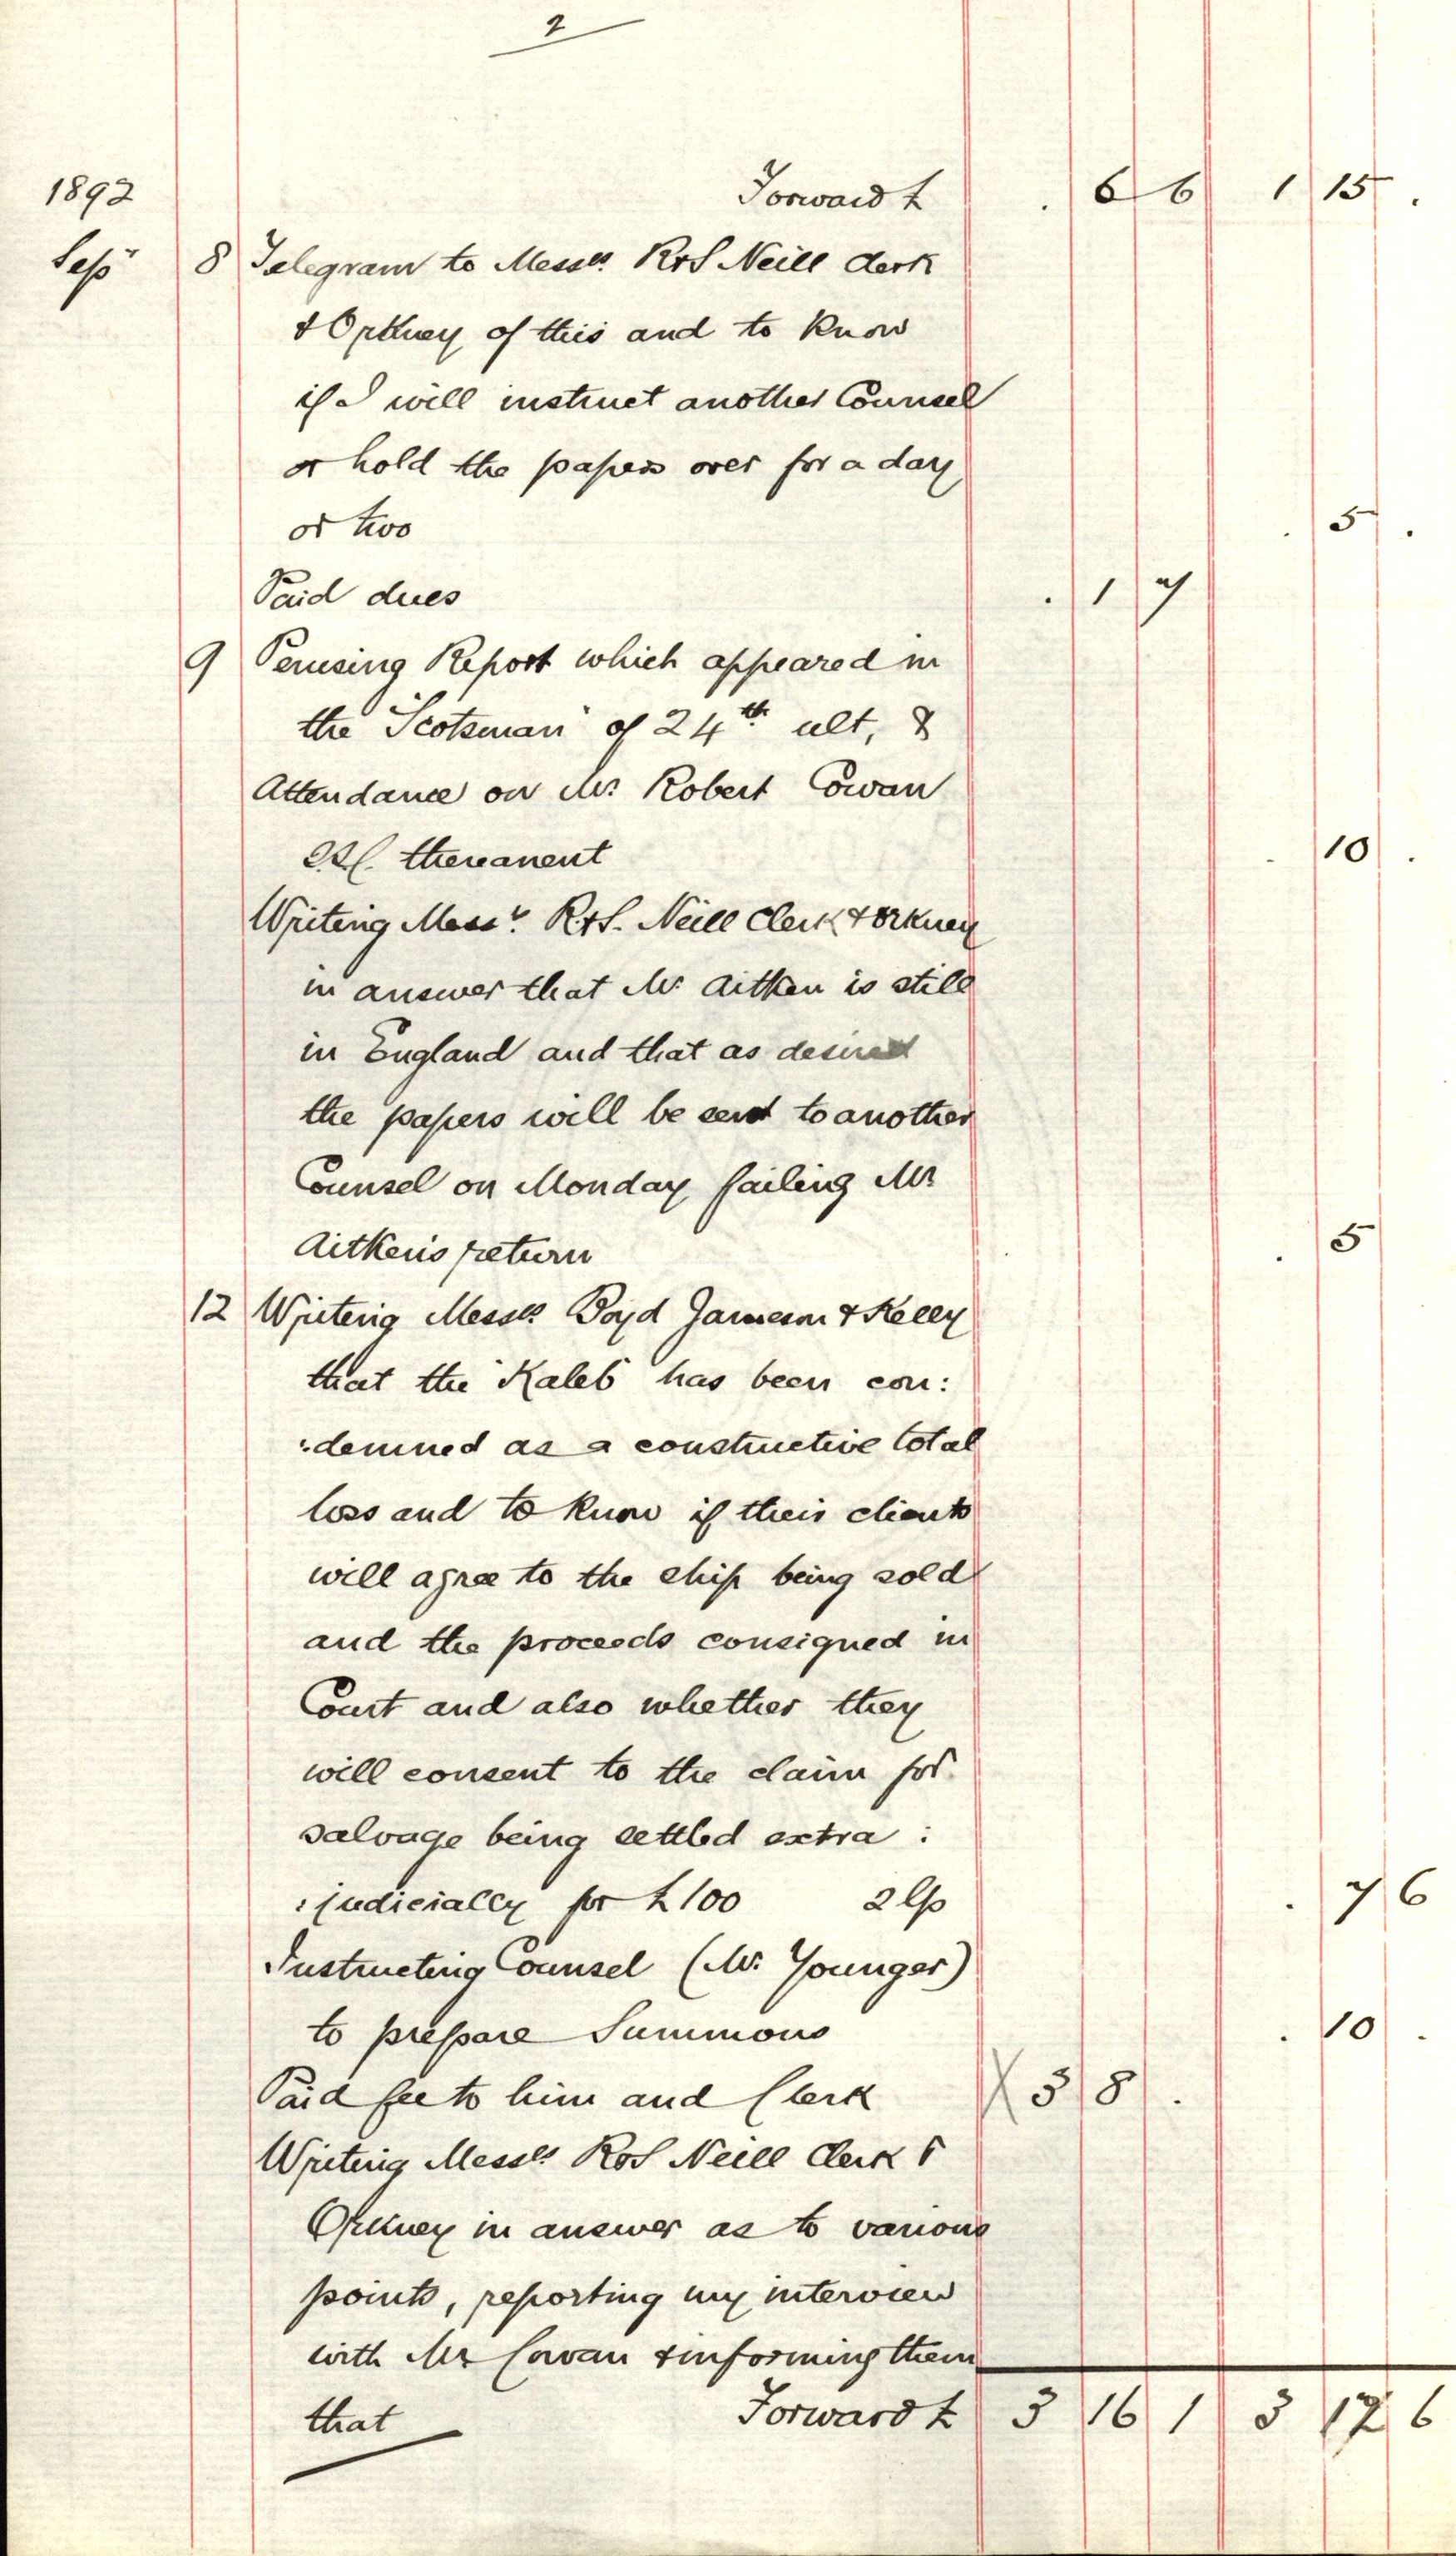 2
1892 Forward £ . 6 6 1 15 .
Sepr 8 Telegram to Messrs R & S Neill Clerk
& Orkney of this and to know
if I will instruct another Counsel
or hold the papers over for a day
or two . 5 .
Paid dues . 1 7
9 Perusing Report which appeared in
the "Scotsman" of 24th ult, &
Attendance on Mr Robert Cowan
thereanent . 10 .
Writing Messrs R & S. Neill Clerk & Orkney
in answer that Mr Aitken is still
in England and that as desired
the papers will be sent to another
Counsel on Monday failing Mr
Aitken's return . 5
12 Writing Messrs Boyd Jameson & Kelly
that the "Kaleb" has been con:
:demned as a constructive total
loss and to know if their clients
will agree to the ship being sold
and the proceeds consigned in
Court and also whether they
will consent to the claim for
salvage being settled extra :
:judicially for £100 2 . 7 6
Instructing Counsel (Mr Younger)
to prepare Summons . 10 .
Paid fee to him and Clerk 3 8 .
Writing Messrs R & S Neill Clerk &
Orkney in answer as to various
points, reporting my interview
with Mr Cowan & informing them
that Forward £ 3 16 1 3 17 6